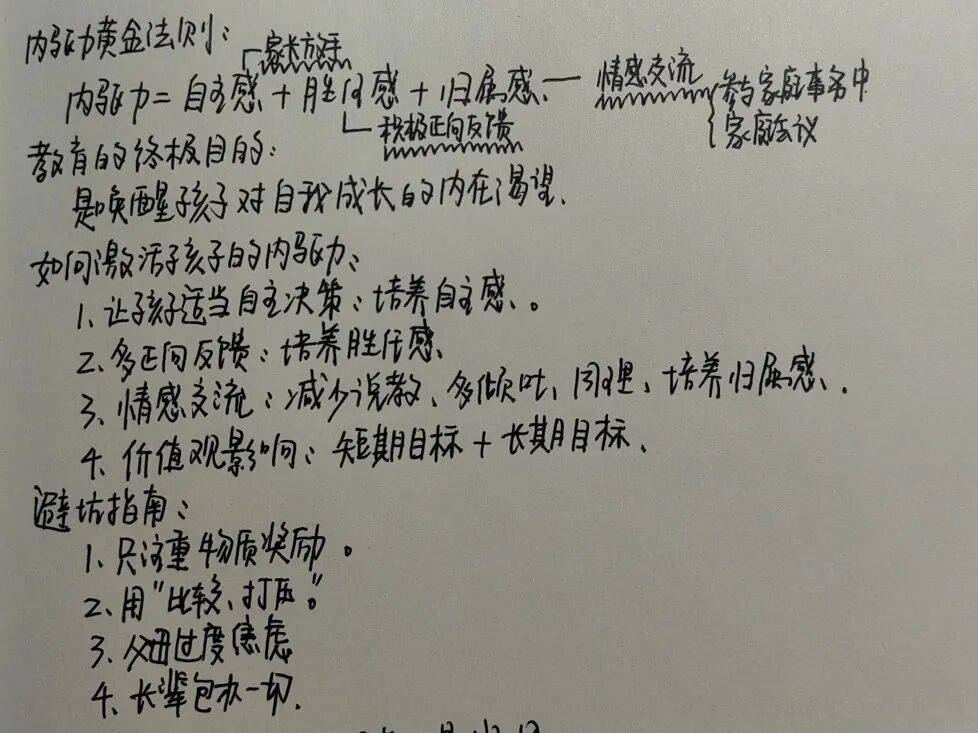 内驱力黄金法则:
家长放手
内驱力=自主感+胜任感+归属感、— 情感交流 { 参与家庭事务中
积极正向反馈 家庭会议
教育的终极目的:
是唤醒孩子对自我成长的内在渴望.
如何激活孩子的内驱力:
1、让孩子适当自主决策:培养自主感、。
2、多正向反馈:培养胜任感、
3、情感交流:减少说教、多倾吐、同理、培养归属感、.
4、价值观影响:短期目标+长期目标、
避坑指南:
1、只注重物质奖励。
2、用"比较、打压"。
3、父母过度焦虑
4、长辈包办一切.